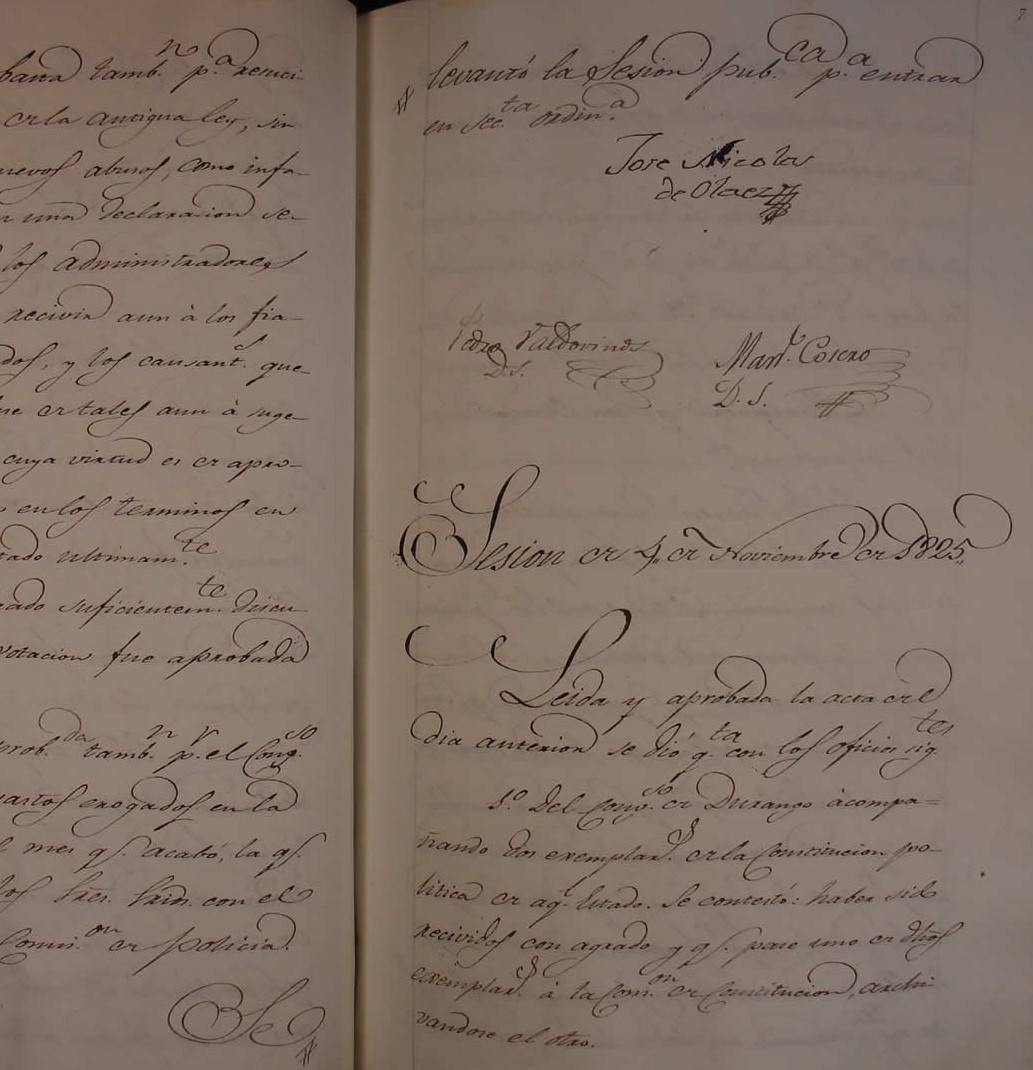 bana tamb.n p.a renici-
er la antigua ley, sin
nuevos abusos, como infa-
n una declaracion se-
los administradores
recivir aun à los fia-
dos, y los causant.s que-
ue er tales aun à suge-
cuya virtud es er apro-
en los terminos en
tado ultimam.te
rado suficientem.te discu-
votacion fue aprobada
prob.da tamb.n p.r el Cong.so
gastos erogados en la
l mes q.e acabó, la q.e
los Sres. Srios. con el
Comi.on er Policia.
Se
7
levantó la Sesion pub.ca p.a entrar
en sec.ta ordin.a
Jose Nicolas
de Olaez
Pedro Valdovinos
D.S.
Man.l Cosero
D. S.
Sesion er 4,, er Noviembre er 1825,,
Leida y aprobada la acta erl
dia anterior se dió q.ta con los oficios sig.tes
1.o Del Cong.so er Durango àcompa=
ñando dos exemplar.s er la Constitucion po-
litica er aq.l Estado. Se contestó: haber sido
recividos con agrado y q.e pase uno er dhos
exemplar.s à la Com.on er Constitucion, archi-
vandose el otro.